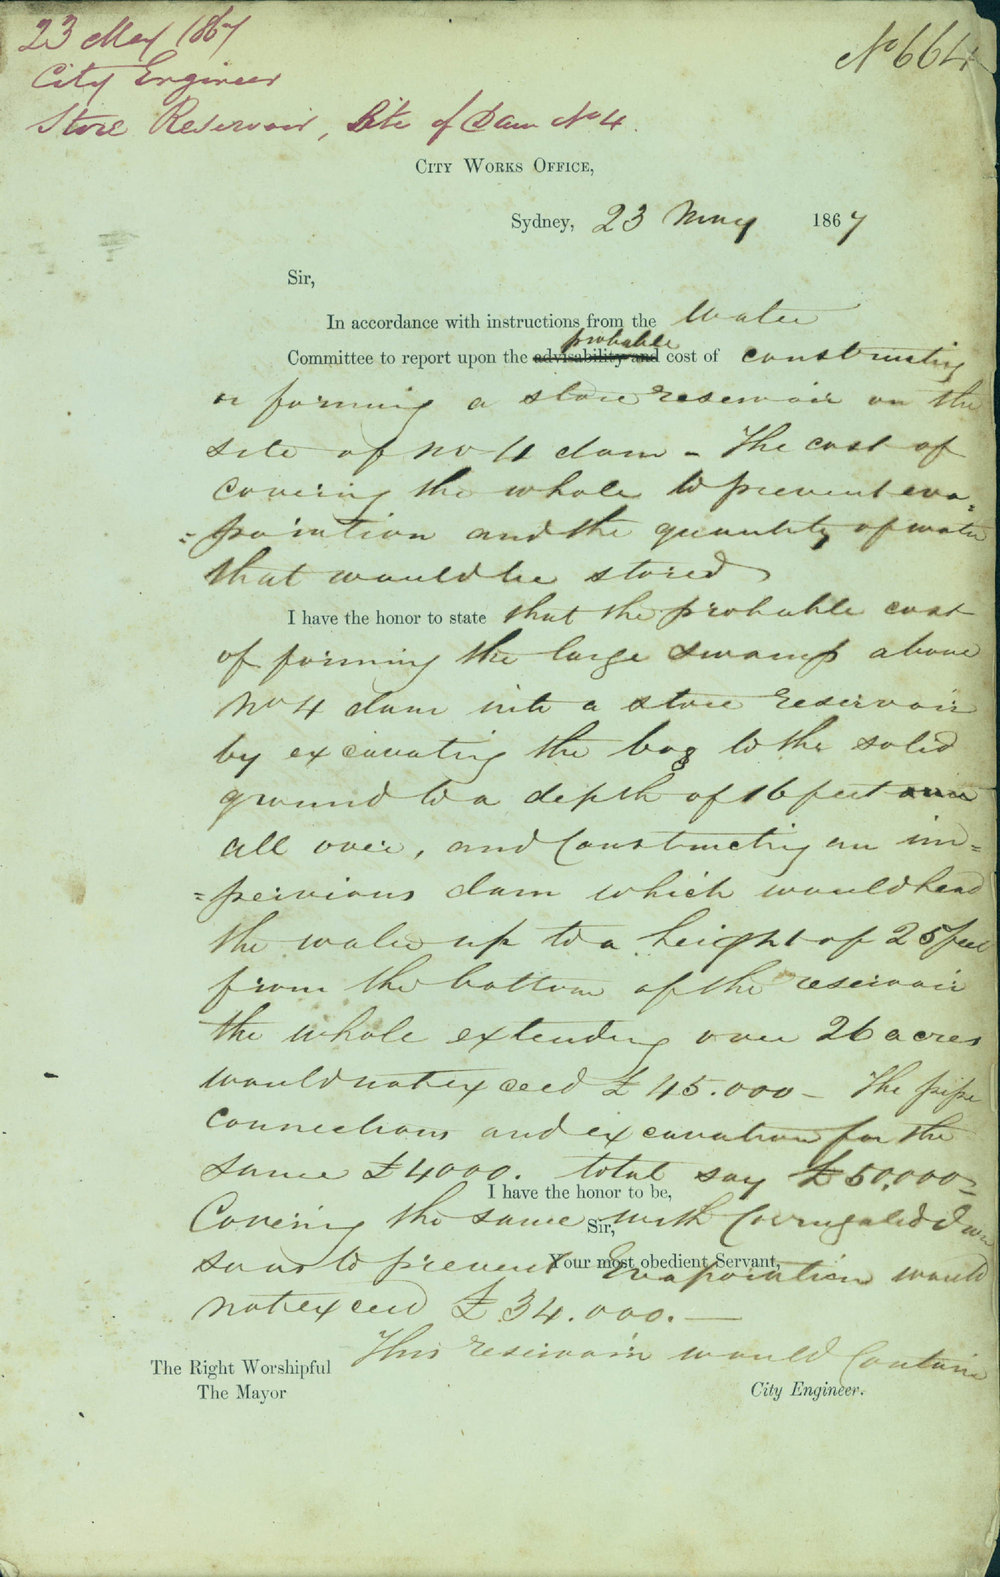 23 May 1867
No 664
City Engineer
Store Reservoir, Site of Dam No 4.
City Works Office,
Sydney, 23 May 1867
Sir,
In accordance with instructions from the Water
probable
Committee to report upon the advisability and cost of constructing
or forming a store reservoir on the
site of no 4 dam - The cost of
covering the whole to prevent eva=
=poration and the quantity of water
that would be stored
I have the honor to state that the probable cost
of forming the large swamp above
No 4 dam into a store reservoir
by excavating the bog to the solid
ground to a depth of 16 feet
all over, and Constructing an im=
=pervious dam which would head
the water up to a height of 25 feet
from the bottom of the reservoir
the whole extending over 26 acres
would not exceed £45.000 - The pipe
connections and excavation for the
same £4000. total say £50,000=
I have the honor to be,
Covering the same with Corrugated Iron
Sir,
so as to prevent Evaporation would
Your most obedient Servant,
not exceed £34.000.—
This reservoir would Contain
The Right Worshipful
The Mayor
City Engineer.